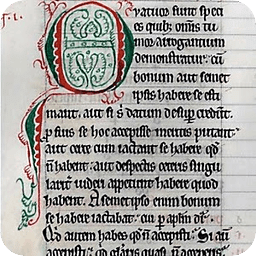 Qvatuor sunt speci
es quib; om̄is tu
mor arrogantium
demonstratur. cū
bonum aut a semet
ipsis habere se esti
mant. aut si s̄ datum desup̄ credūt.
p̄ suis se hoc accepisse meritis putant.
aut certe cum iactant se habere qđ
ñ habent. aut despectis ceteris singu
larit̄ videri appetunt habere quod
habent. A semetipso enim bonum
se habere iactabat. cui p̄ aplm̄ dr̄.
Qd̄ autem habes qđ ñ accepisti. Si aū
accepisti. qđ gl̄aris quasi ñ accepis̄.